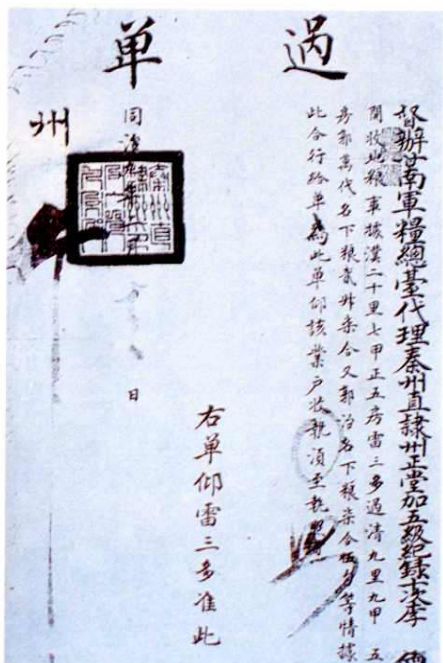 過単
督辦甘南軍糧總臺代理秦州直隸州正堂加五級紀錄李
開收地粮事據漢二十里七甲正五房雷三多過清九里九甲五
房郭萬代名下粮貳升柒合又郭治名下粮柒合伍勺等情據
此合行給单為此单仰該業户收執須至執照
右単仰雷三多准此
同治九年六
日
州